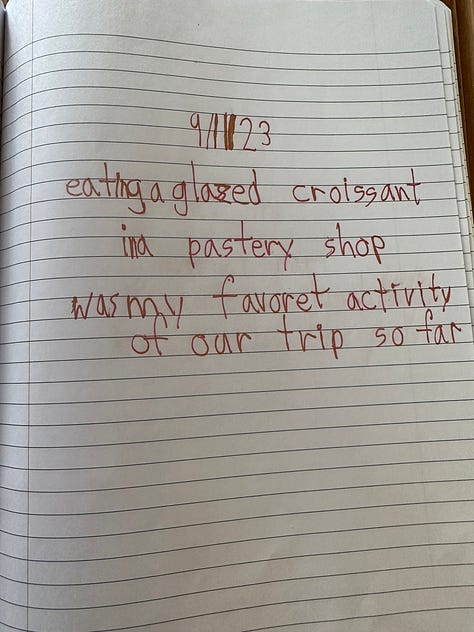 9/11/23
eating a glazed croissant
in a pastery shop
was my favoret activity
of our trip so far